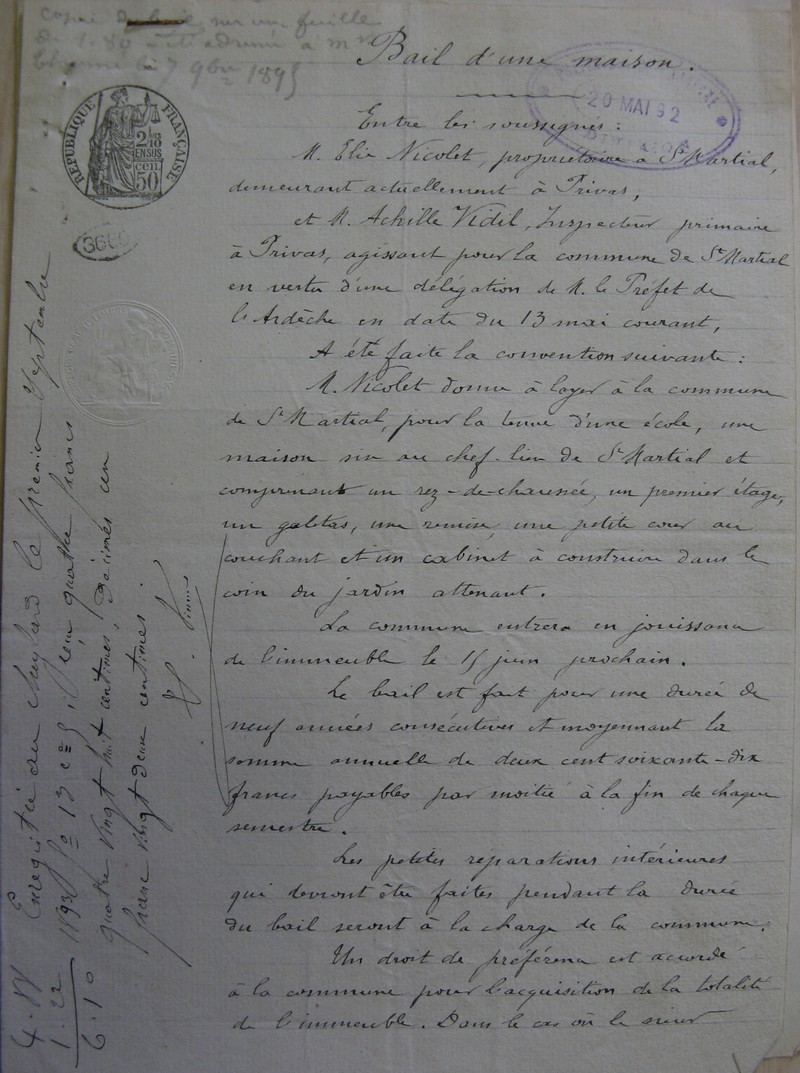 copie de bail sur une feuille
de 1.80 adressée à Mr
le 7 9bre 1895
Bail d'une maison.
20 MAI 92
RÉPUBLIQUE FRANÇAISE
2/10 EN SUS
50 cen
Entre les soussignés :
M. Elie Nicolet, propriétaire à St Martial,
demeurant actuellement à Privas,
et M. Achille Vidil, Inspecteur primaire
à Privas, agissant pour la commune de St Martial
en vertu d'une délégation de M. le Préfet de
l'Ardèche en date du 13 mai courant,
A été faite la convention suivante :
M. Nicolet donne à loyer à la commune
de St Martial, pour la tenue d'une école, une
maison sise au chef-lieu de St Martial et
comprenant un rez-de-chaussée, un premier étage,
un galetas, une remise, une petite cour au
couchant et un cabinet à construire dans le
coin du jardin attenant.
La commune entrera en jouissance
de l'immeuble le 15 juin prochain.
Le bail est fait pour une durée de
neuf années consécutives et moyennant la
somme annuelle de deux cent soixante-dix
francs payables par moitié à la fin de chaque
semestre.
Les petites réparations intérieures
qui devront être faites pendant la durée
du bail seront à la charge de la commune.
Un droit de préférence est accordé
à la commune pour l'acquisition de la totalité
de l'immeuble. Dans le cas où le sieur
Enregistré au Cheylard le premier Septembre
1893 fo 13 ce 5 reçu quatre francs
quatre vingt huit centimes, décimes un
franc vingt deux centimes.
4.88
1.22
6.10